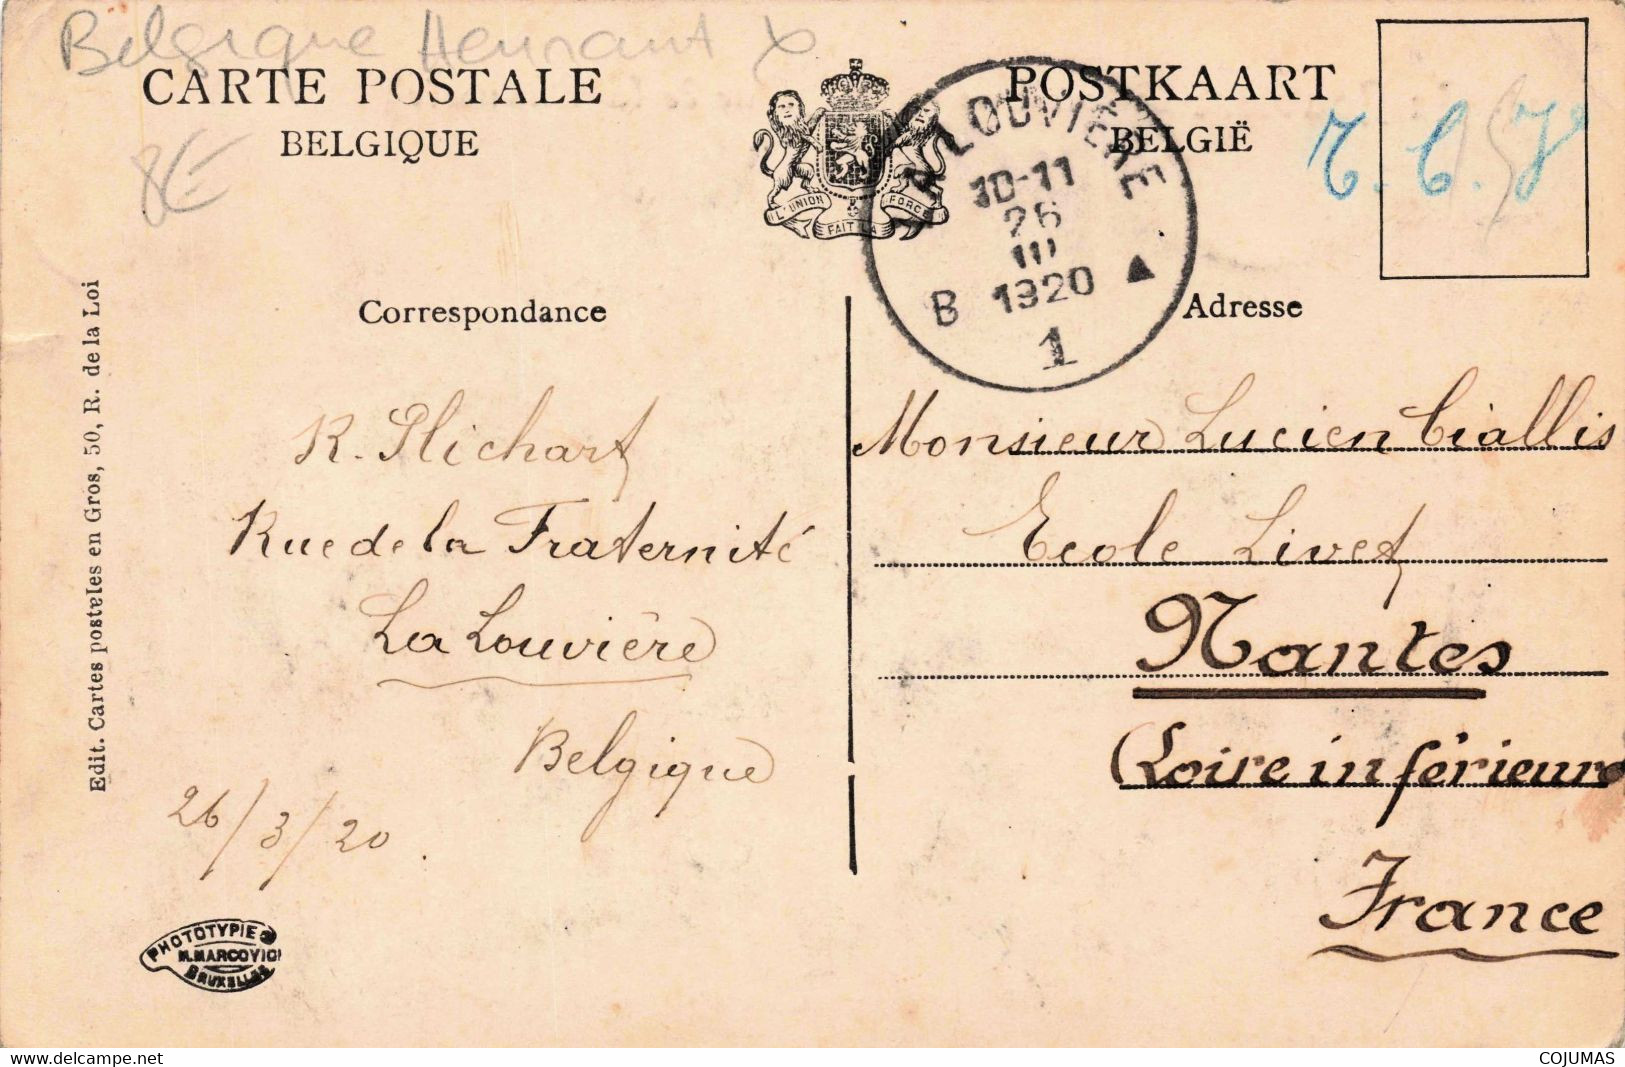 Belgique
CARTE POSTALE
BELGIQUE
8€
L'UNION FAIT LA FORCE
POSTKAART
BELGIË
LA LOUVIÈRE
10-11
26
III
1920
B
1
T.C.
Correspondance
Adresse
R. Plichart
Rue de la Fraternité
La Louvière
Belgique
26/3/20
Monsieur Lucien Ciallis
Ecole Livet
Nantes
(Loire inférieure
France
Edit. Cartes postales en Gros, 50, R. de la Loi
PHOTOTYPIE
M. MARCOVICI
BRUXELLES
www.delcampe.net
COJUMAS